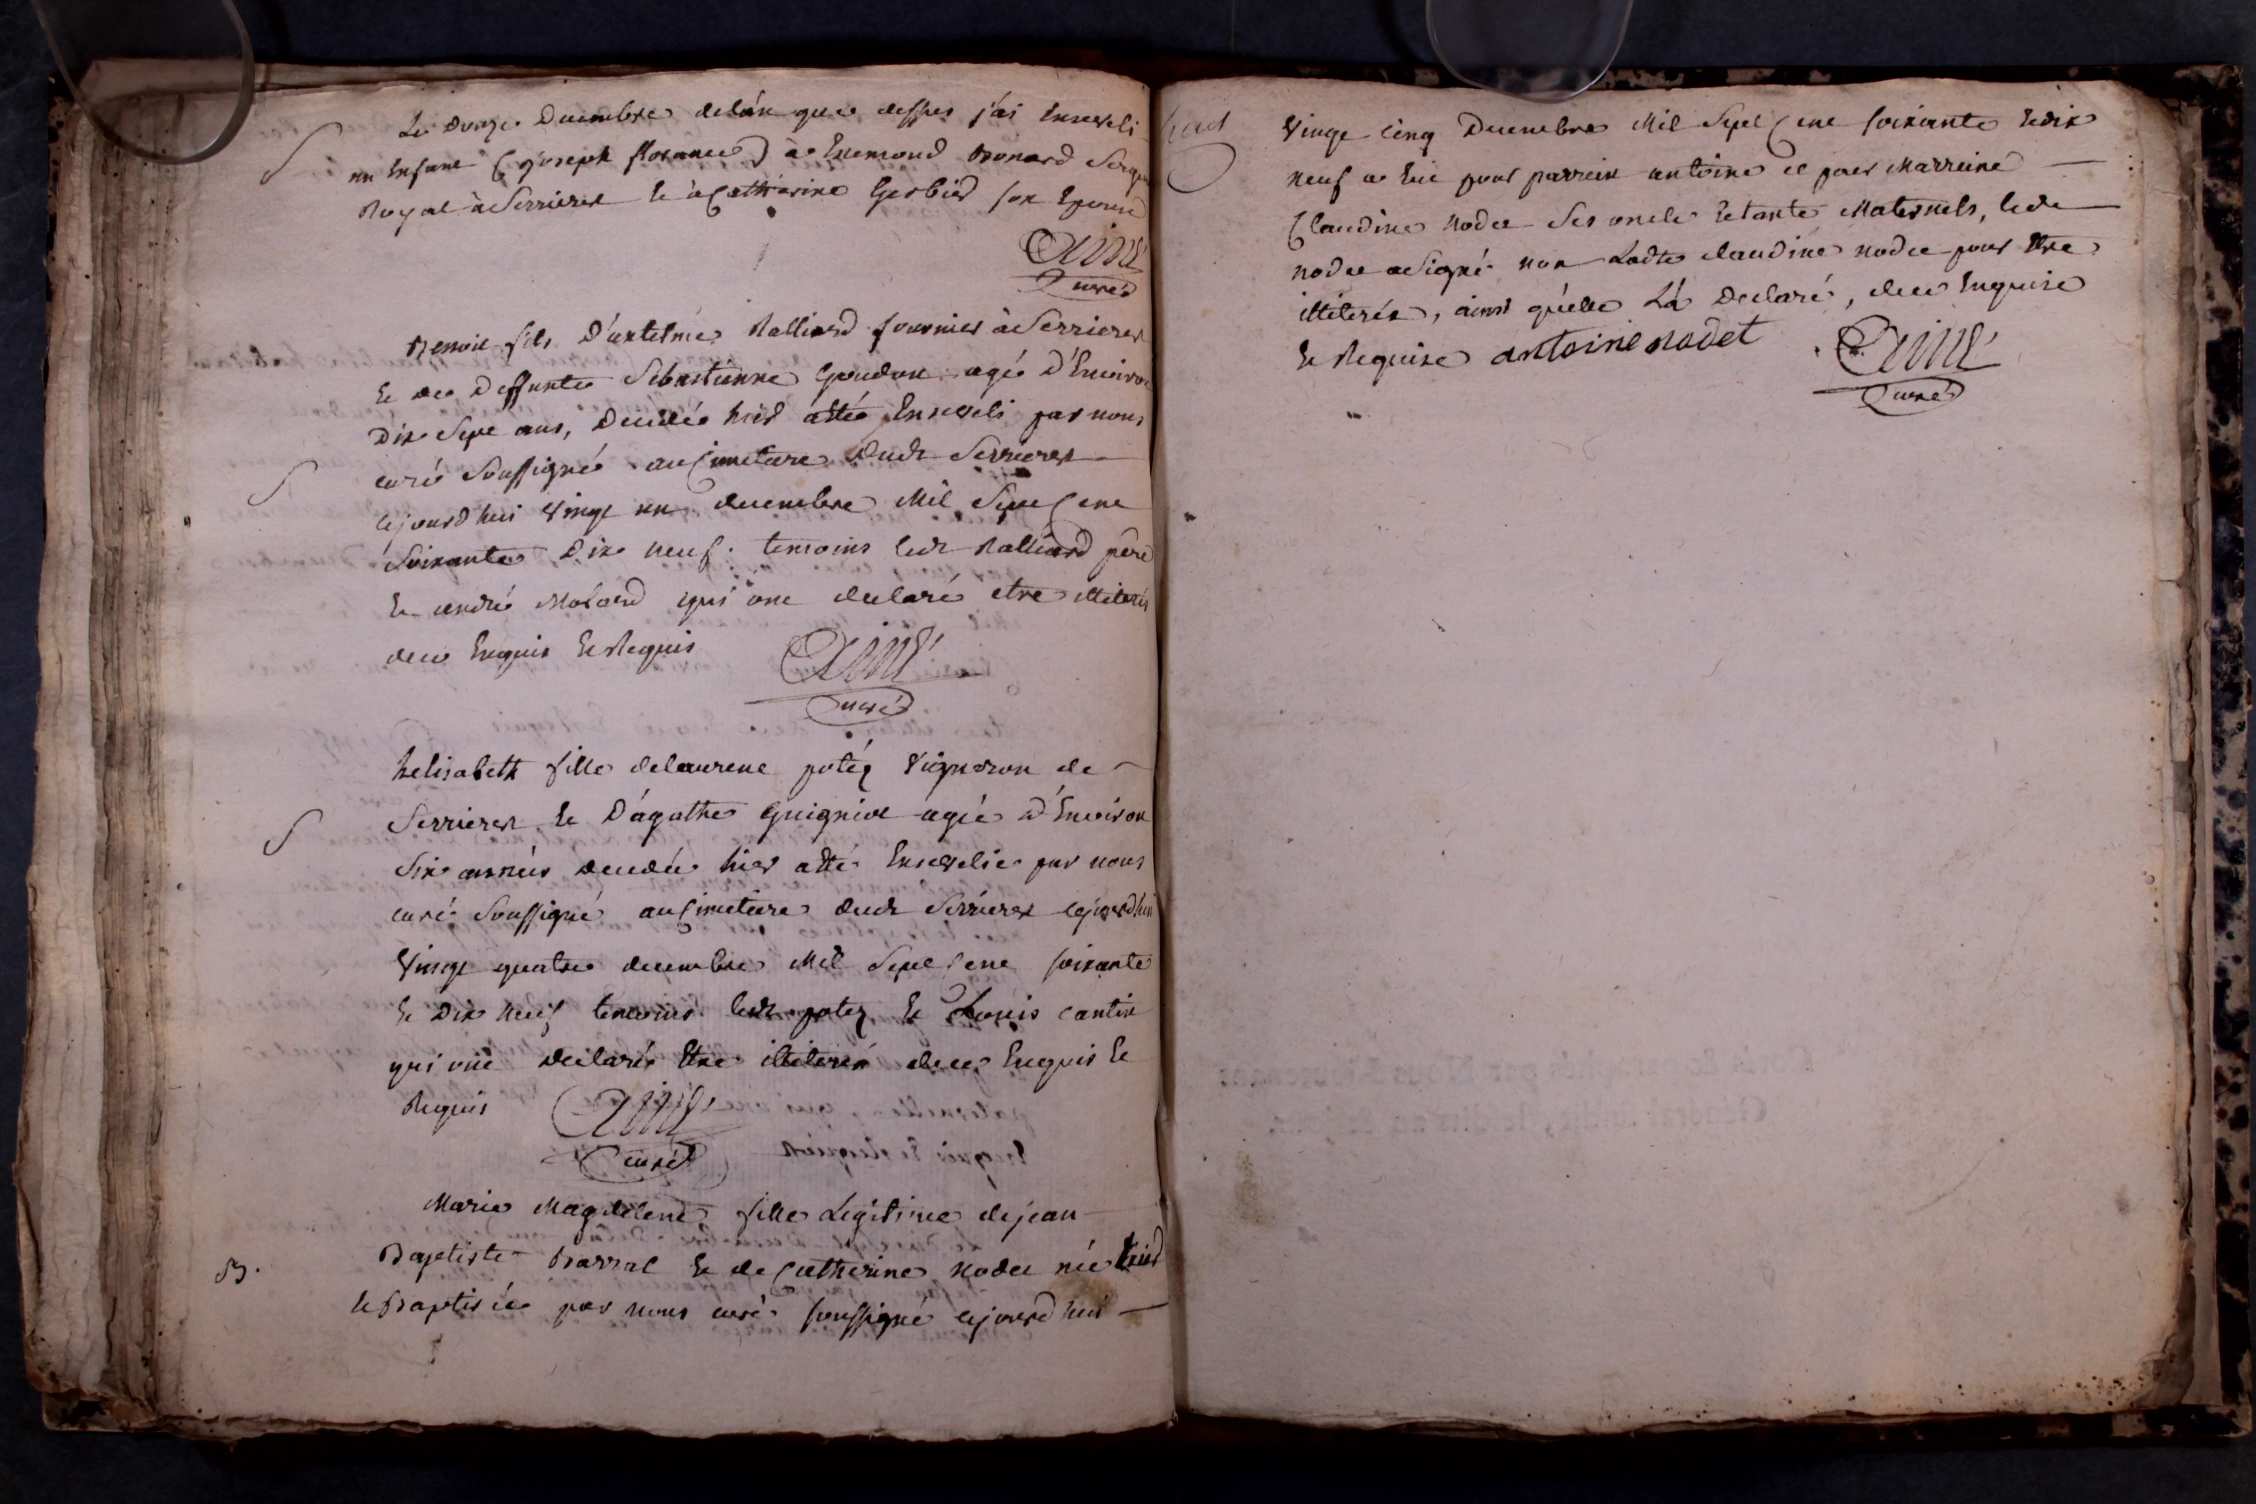 Le onze Decembre delán que dessus j'ai Enseveli
un Enfant (joseph florance) à Enemond bonard Sergent
Royal à Serrieres Et à Catherine Gerbier son Epouse
Aimé
Curé
S
Benoit fils D'antelme Ralliard fournier à Serrieres
Et de Deffunte Sebastienne Goudon agé D'Environ
Dix Sept ans, Decédé hier atté Enseveli par nous
curé Soussigné au Cimetiere dudt Serrieres
cejourd'hui vingt un decembre Mil Sept Cent
Soixante Dix neuf. temoins ledt Ralliard père
Et andré Molard qui ont declaré etre illiterés
dece Enquis Et Requis
Aimé
Curé
S
helisabeth fille delaurent potéz Vigneron de
Serrieres Et D'ágathe Guigniot agée d'Environ
Six années decedée hier atté Ensevelie par nous
curé Soussigné au Cimetiere dudt Serrieres cejourd'hui
Vingt quatre decembre Mil Sept Cent soixante
Et Dix neuf temoins ledt potez Et Louis cantin
qui ont declaré Etre illiterés dece Enquis Et
Requis
Aimé
Curé
S
Marie Magdelene fille Legitime dejean
Baptiste barral Et de Catherine nodet née hier
et Baptisée par nous curé soussigné cejourd'hui
B.
Vingt Cinq Decembre Mil Sept Cent soixante Et dix
neuf a Eu pour parrein antoine et pour Marreine
Claudine nodet Ses oncle Et tante Maternels, ledt
nodet a Signé non Ladte claudine nodet pour Etre
illiterée, ainsi qu'elle Lá Declaré, dece Enquise
Et Requise antoine nodet
Aimé
Curé